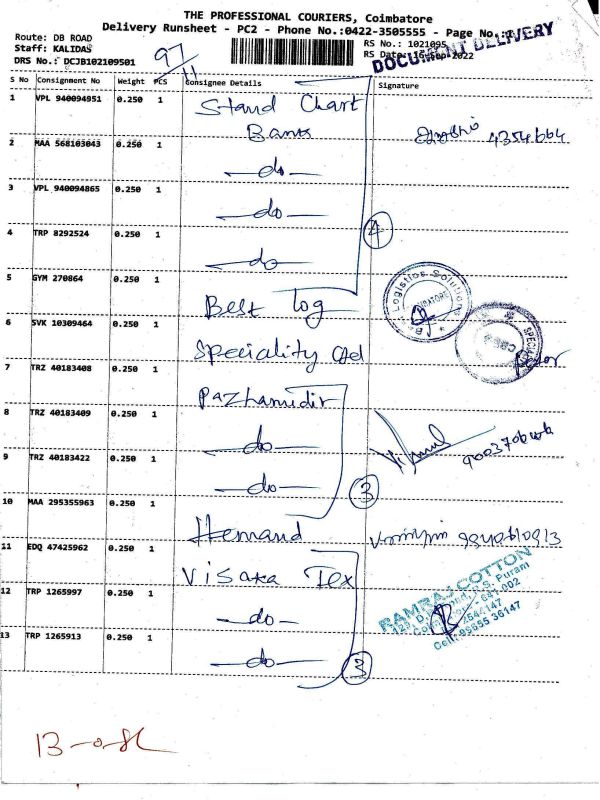 THE PROFESSIONAL COURIERS, Coimbatore
Delivery Runsheet - PC2 - Phone No.:0422-3505555 - Page No.:1
Route: DB ROAD
Staff: KALIDAS
DRS No.: DCJB102109501
97/11
RS No.: 1021095
RS Date: 16-Sep-2022
DOCUMENT DELIVERY
S No Consignment No Weight PCS Consignee Details Signature
1 VPL 940094951 0.250 1 Stand Chart Bank
2 MAA 568103043 0.250 1 —do— 4354664
3 VPL 940094865 0.250 1 —do—
4 TRP 8292524 0.250 1 —do— 4
5 GYM 270864 0.250 1 Best Log
Logistics Solutions
6 SVK 10309464 0.250 1 Speciality
7 TRZ 40183408 0.250 1 Pazhamudir
8 TRZ 40183409 0.250 1 —do—
9 TRZ 40183422 0.250 1 —do— 3
10 MAA 295355963 0.250 1 Hemand
11 EDQ 47425962 0.250 1 Visaka Tex
RAMRAJ COTTON
12 TRP 1265997 0.250 1 —do—
13 TRP 1265913 0.250 1 —do— 3
Cell: 95855 36147